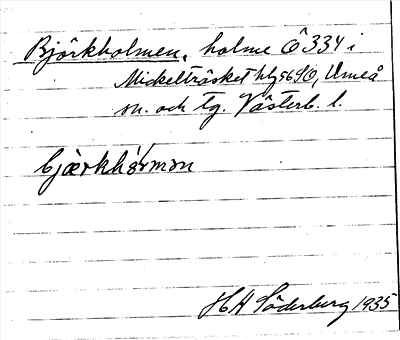 Björkholmen, holme Ö 334 i
Mickelträsket hlg 56 SO, Umeå
sn. och tg. Västerb. l.
HA Söderberg 1935